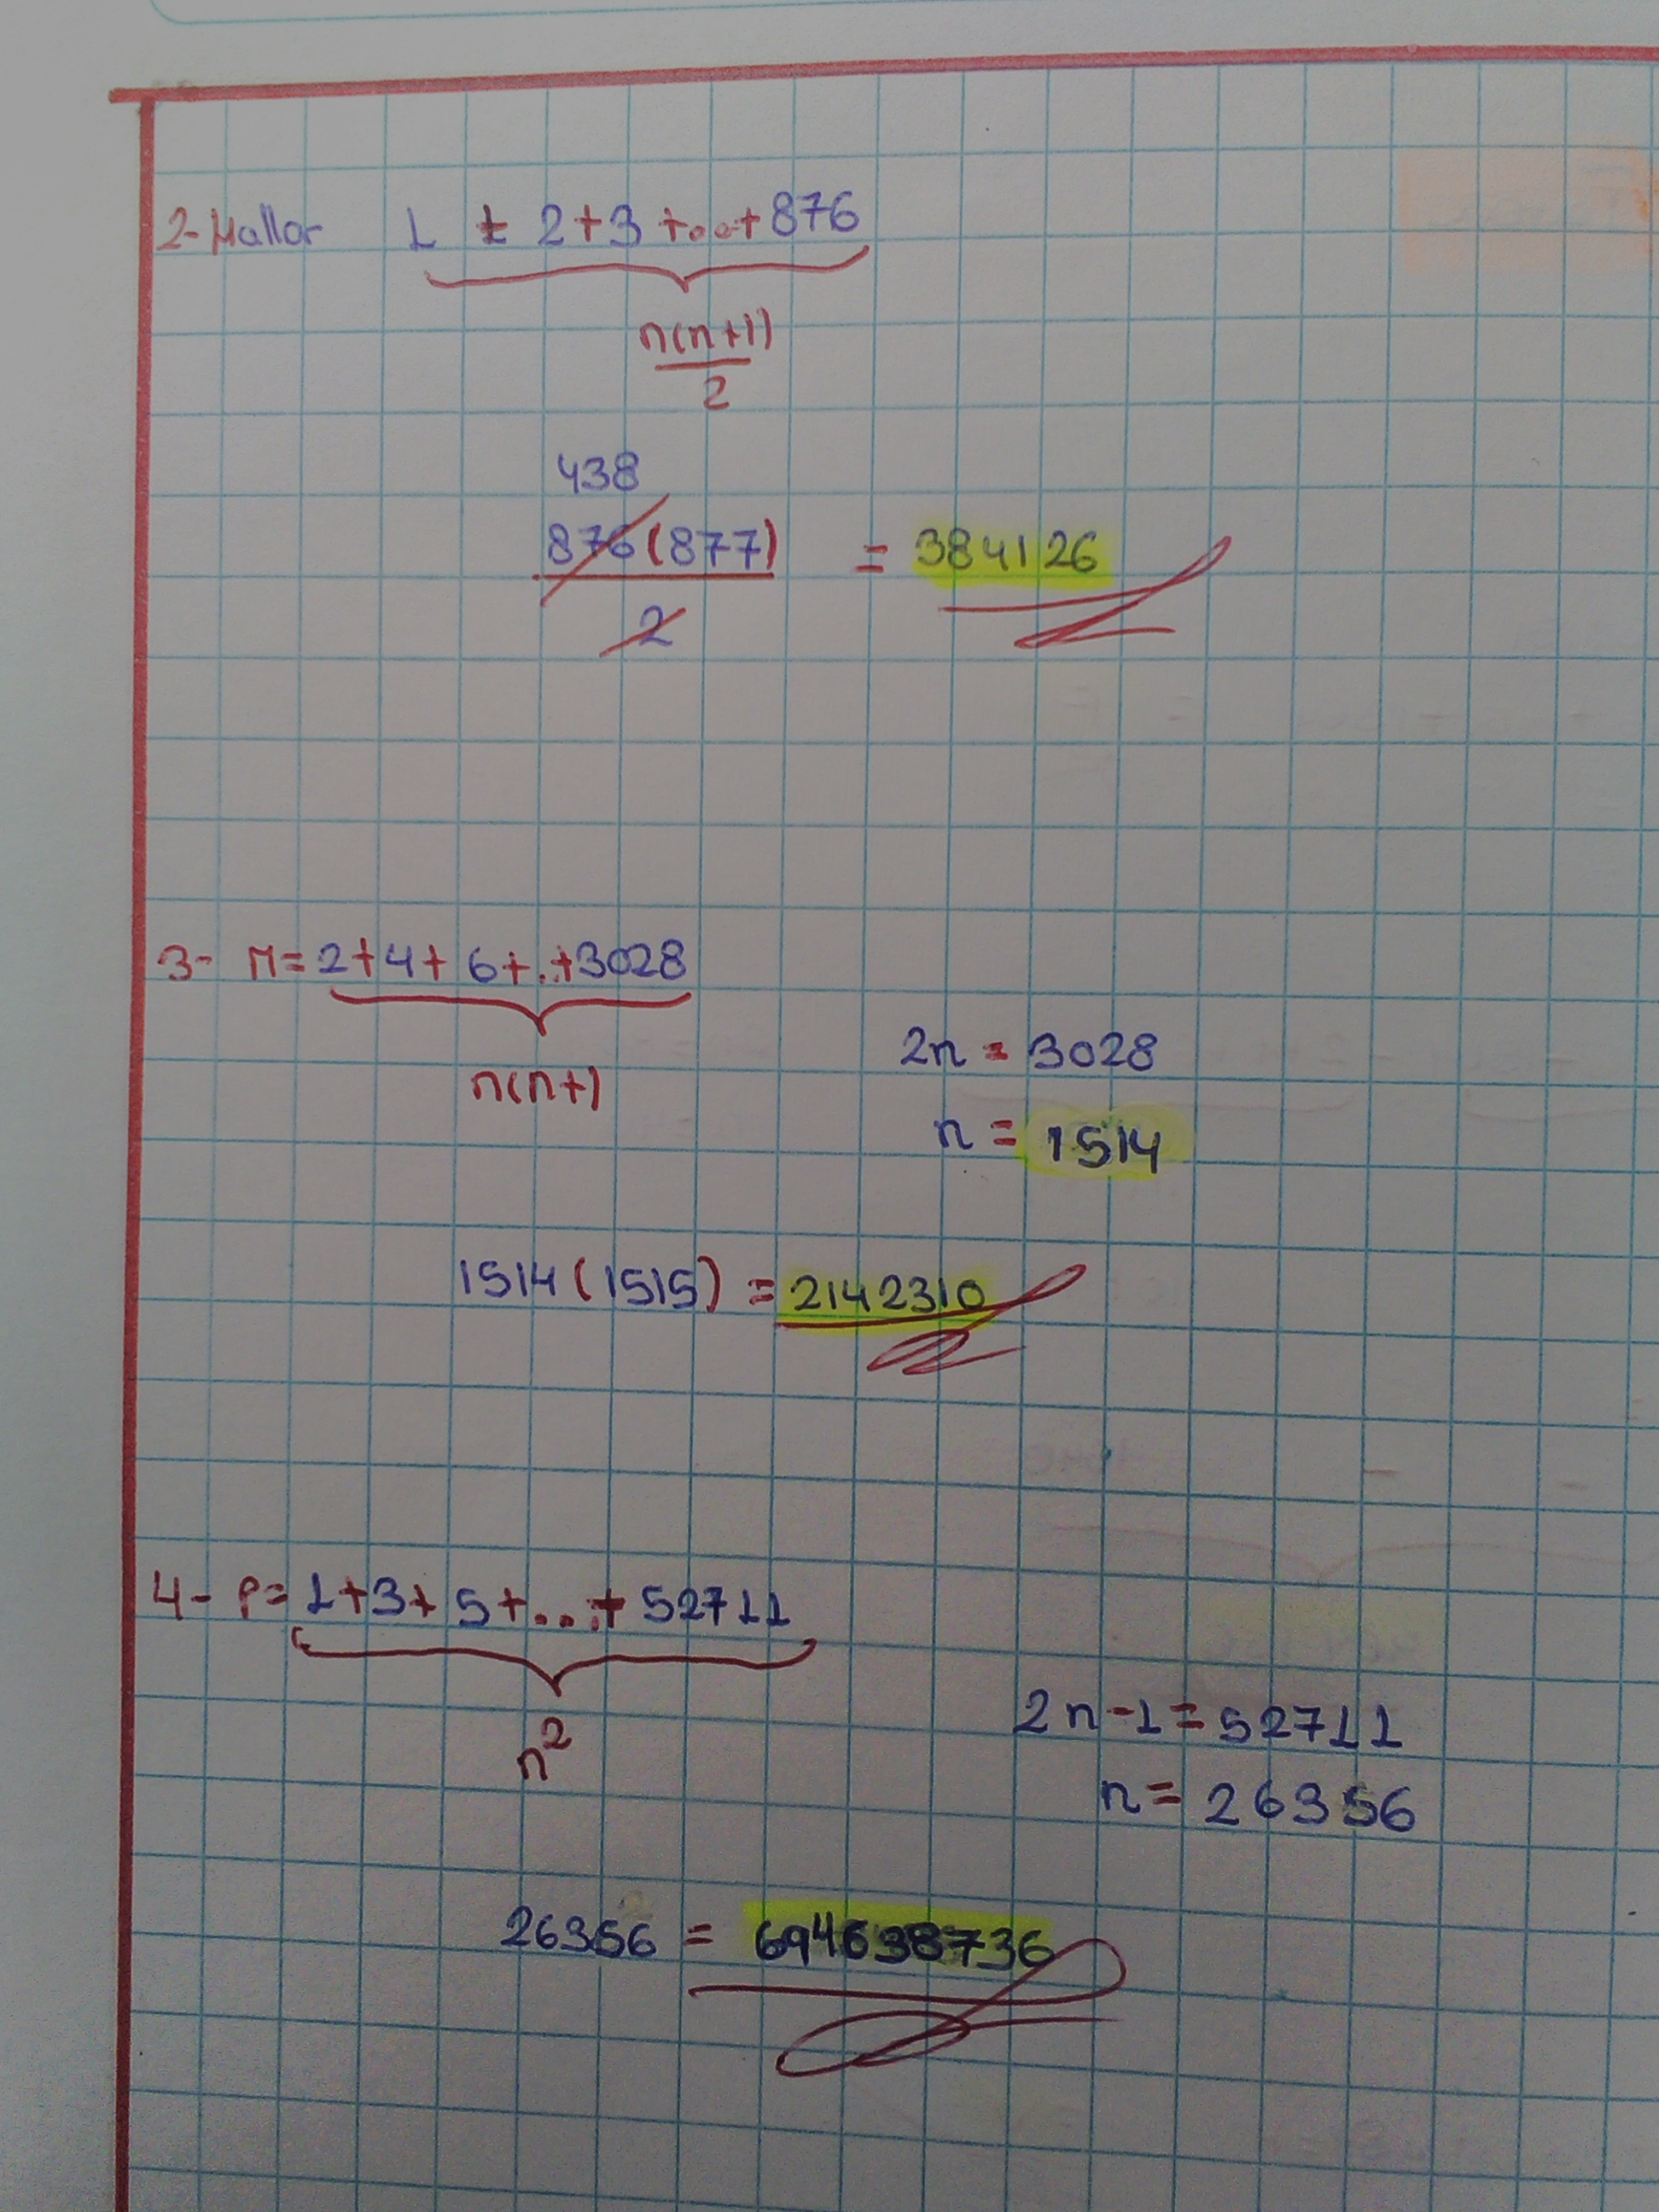 2- Hallar 1 + 2 + 3 +...+ 876
n(n+1)
2
438
876(877) = 384126
2
3- M = 2+4+6+..+3028
n(n+1)
2n = 3028
n = 1514
1514(1515) = 2142310
4- P = 1+3+5+...+52711
n²
2n-1 = 52711
n = 26356
26356 = 694638736